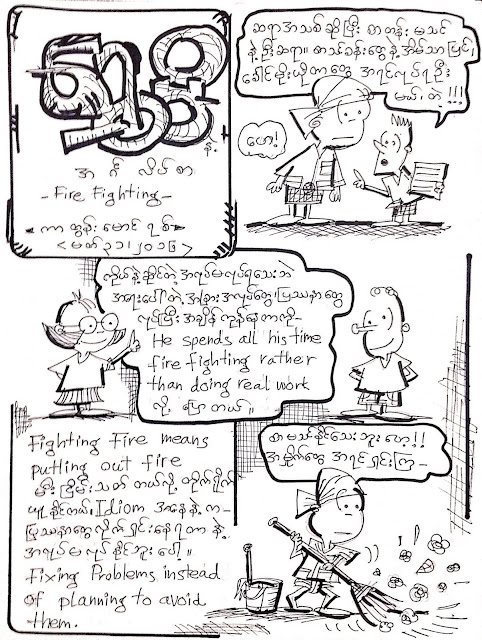 အင်္ဂလိပ်စာ
- Fire Fighting -
ကာတွန်း မောင်ရစ်
ဆရာအသစ်ဆိုပြီး စာတန်း မသင်
နဲ့ဦးဆရာ။ စာသင်ခန်းတွေနဲ့ အိမ်သာပြင်၊
ခေါင်မိုးယိုတာတွေ အရင်လုပ်ရဦး
မယ်၊ တဲ့ !!!
ဟေ!
ကိုယ်နဲ့ဆိုင်တဲ့ အလုပ်မလုပ်ရသေးဘဲ
အရေးပေါ်တဲ့ အခြားအလုပ်တွေ၊ ပြဿနာတွေ
လုပ်ပြီး အချိန်ကုန်နေတာကို-
He spends all his time
fire fighting rather
than doing real work
လို့ ပြောတယ်။
Fighting Fire means
putting out fire
မီး ငြိမ်းသတ် တယ်လို့ တိုက်ရိုက်
Idiom အနေနဲ့ က-
ပြဿနာတွေ လိုက်ရှင်းနေရတာ နဲ့
အလုပ် မလုပ် နိုင်ဘူး ပေါ့။
Fixing Problems instead
of planning to avoid
them.
စာမသင်နိုင်သေးဘူး ဟေ့!!
အမှိုက်တွေ အရင်ရှင်းကြ-